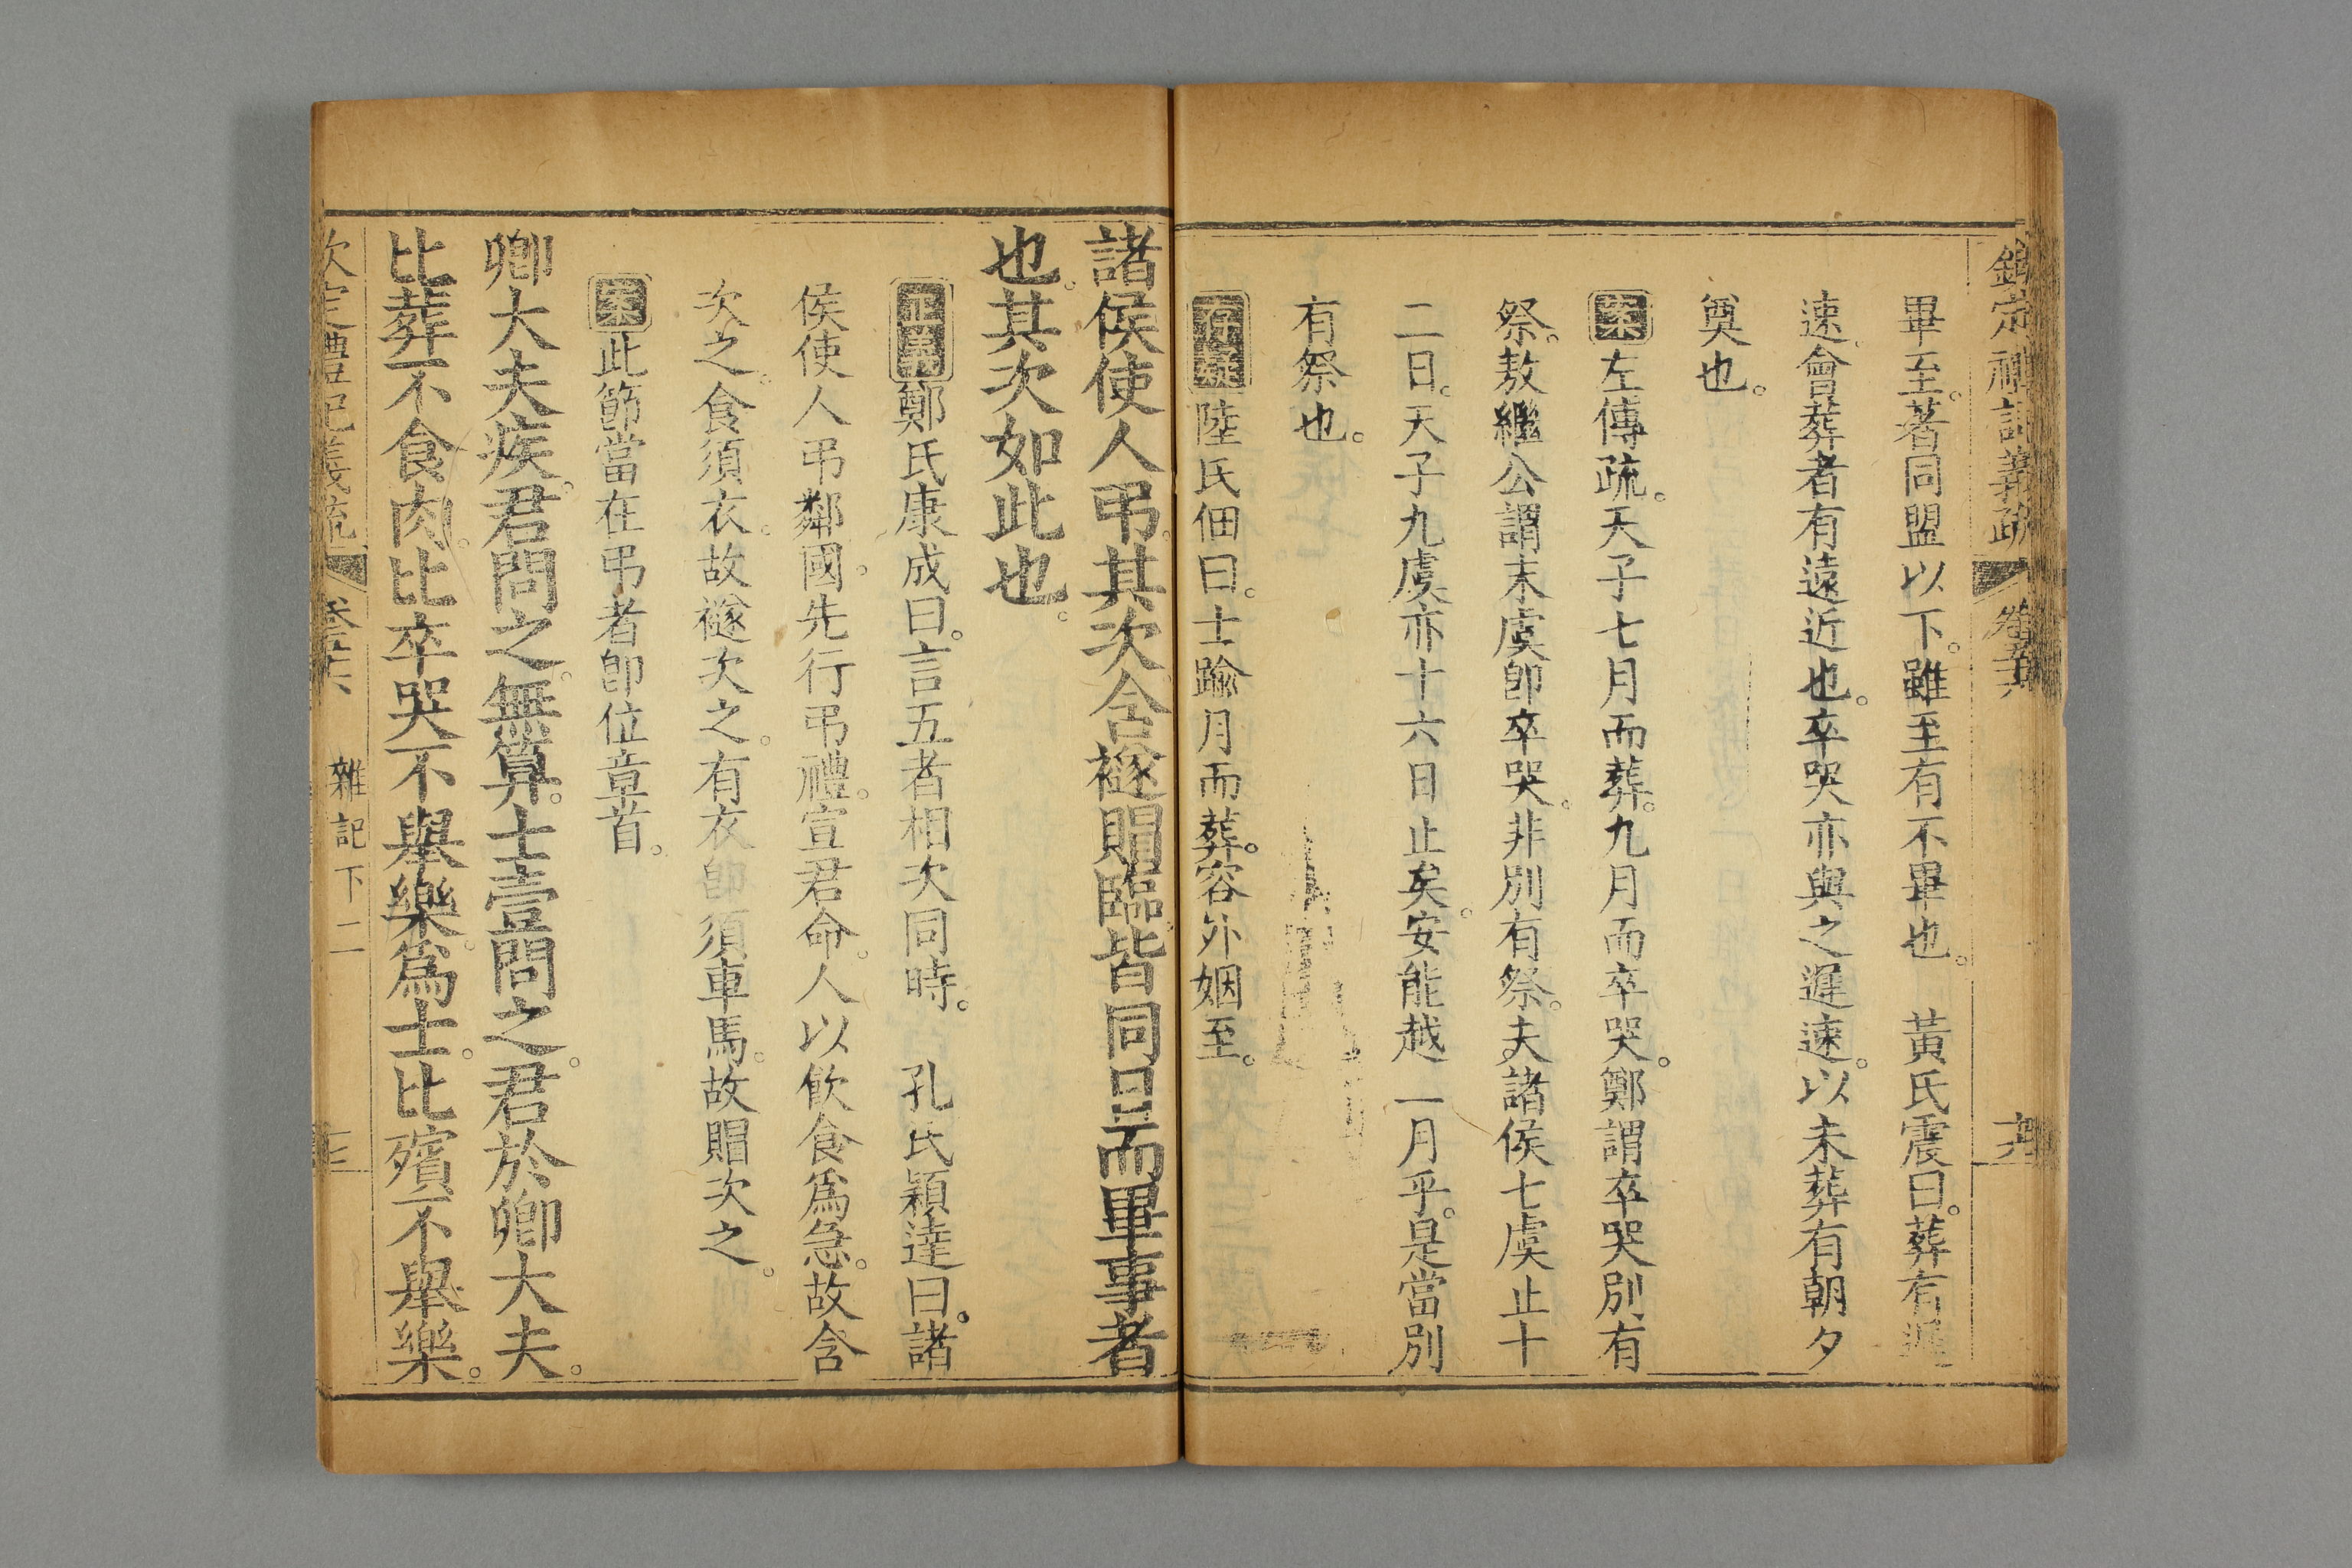 欽定禮記義疏 卷五六
畢至。著同盟以下。雖至有不畢也。 黃氏震曰。葬有遲
速。會葬者有遠近也。卒哭亦與之遲速。以未葬有朝夕
奠也。
案左傳疏。天子七月而葬。九月而卒哭。鄭謂卒哭別有
祭。敖繼公謂末虞卽卒哭。非別有祭。夫諸侯七虞止十
二日。天子九虞亦十六日止矣。安能越一月乎。是當別
有祭也。
存疑陸氏佃曰。士踰月而葬。容外姻至。
諸侯使人弔。其次含襚賵臨。皆同日而畢事者
也。其次如此也。
正義鄭氏康成曰。言五者相次同時。 孔氏穎達曰。諸
侯使人弔鄰國。先行弔禮。宣君命。人以飲食爲急。故含
次之。食須衣。故襚次之。有衣卽須車馬。故賵次之。
案此節當在弔者卽位章首。
卿大夫疾。君問之。無算。士壹問之。君於卿大夫。
比葬不食肉。比卒哭不舉樂。爲士。比殯不舉樂。
欽定禮記義疏 卷五六 雜記下二 三